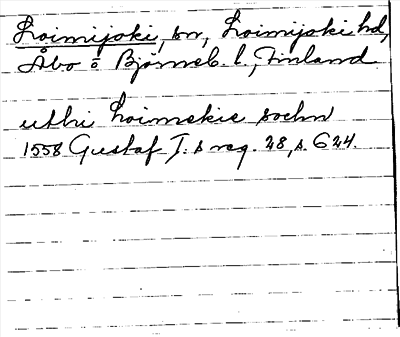 Loimijoki, sn, Loimijoki hd,
Åbo o Björneb. l., Finland
uthi Loimekie sochn
1558 Gustaf I:s reg. 28, s. 624.